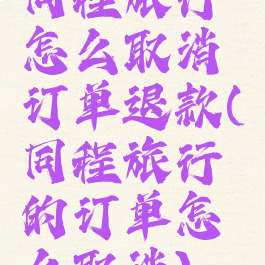 同程旅行
怎么取消
订单退款(
同程旅行
的订单怎
么取消)